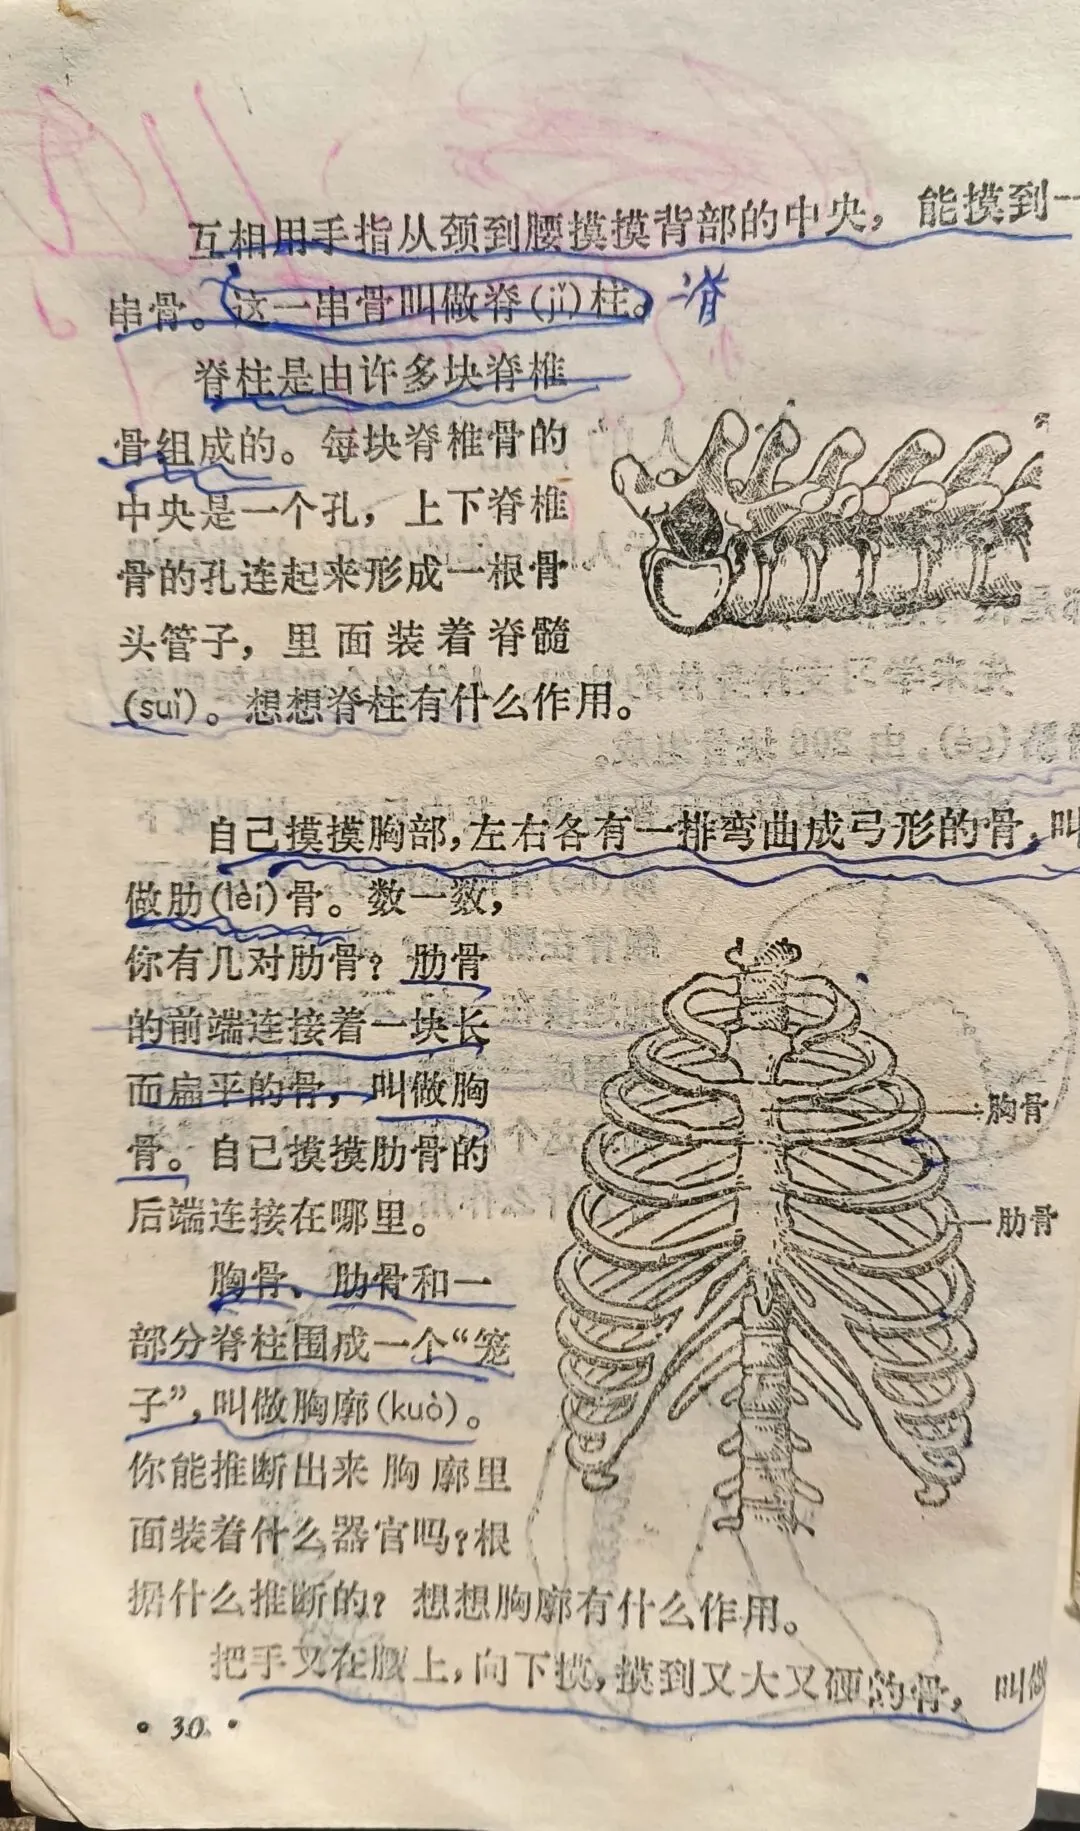 互相用手指从颈到腰摸摸背部的中央，能摸到一
串骨。这一串骨叫做脊(jǐ)柱。脊
脊柱是由许多块脊椎
骨组成的。每块脊椎骨的
中央是一个孔，上下脊椎
骨的孔连起来形成一根骨
头管子，里面装着脊髓
(suǐ)。想想脊柱有什么作用。
自己摸摸胸部，左右各有一排弯曲成弓形的骨，叫
做肋(lèi)骨。数一数，
你有几对肋骨？肋骨
的前端连接着一块长
而扁平的骨，叫做胸
骨。自己摸摸肋骨的
后端连接在哪里。
胸骨
肋骨
胸骨、肋骨和一
部分脊柱围成一个“笼
子”，叫做胸廓(kuò)。
你能推断出来胸廓里
面装着什么器官吗？根
据什么推断的？想想胸廓有什么作用。
把手叉在腰上，向下摸，摸到又大又硬的骨，叫做
• 30 •